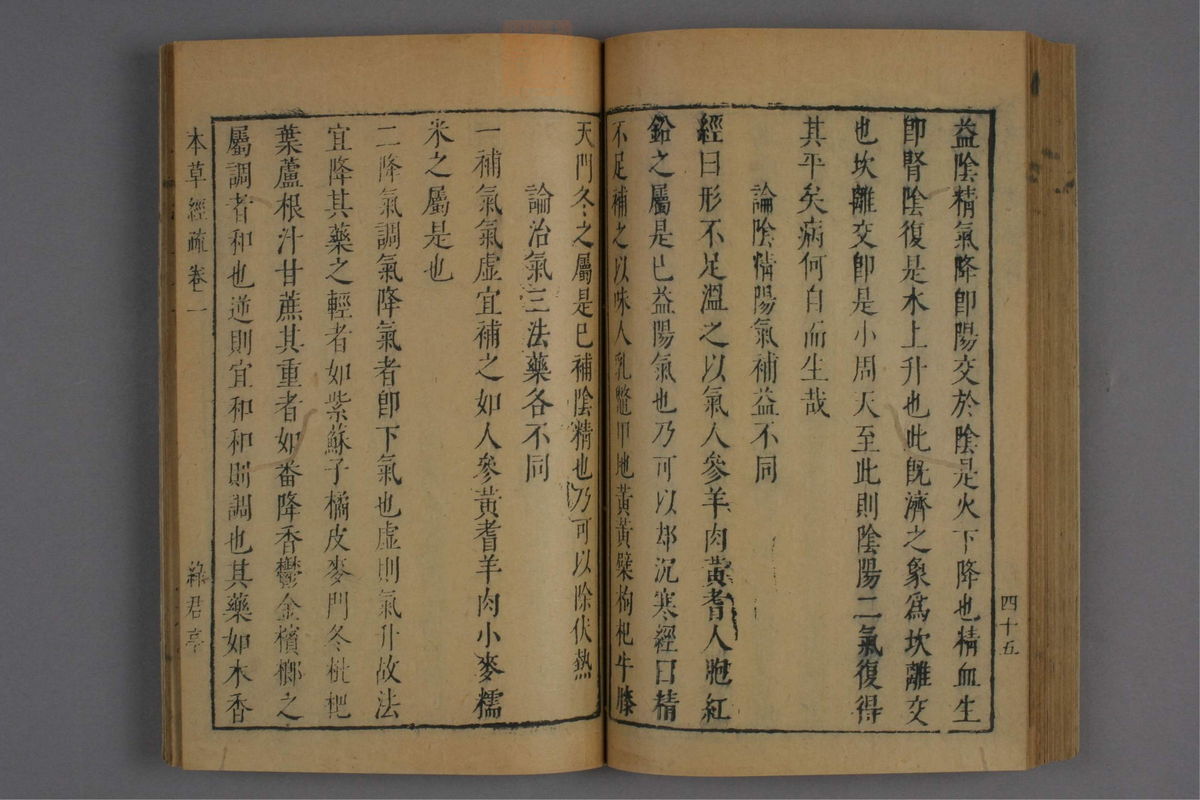 四十五
益陰精氣降卽陽交於陰是火下降也精血生
卽腎陰復是水上升也此旣濟之象爲坎離交
也坎離交卽是小周天至此則陰陽二氣復得
其平矣病何自而生哉
論陰精陽氣補益不同
經曰形不足溫之以氣人參羊肉黃耆人胞紅
鉛之屬是已益陽氣也乃可以却沉寒經曰精
不足補之以味人乳鼈甲地黃黃檗枸杞牛膝
天門冬之屬是已補陰精也乃可以除伏熱
論治氣三法藥各不同
一補氣氣虛宜補之如人參黃耆羊肉小麥糯
米之屬是也
二降氣調氣降氣者卽下氣也虛則氣升故法
宜降其藥之輕者如紫蘇子橘皮麥門冬枇杷
葉蘆根汁甘蔗其重者如番降香鬱金檳榔之
屬調者和也逆則宜和和則調也其藥如木香
本草經疏卷一
綠君亭